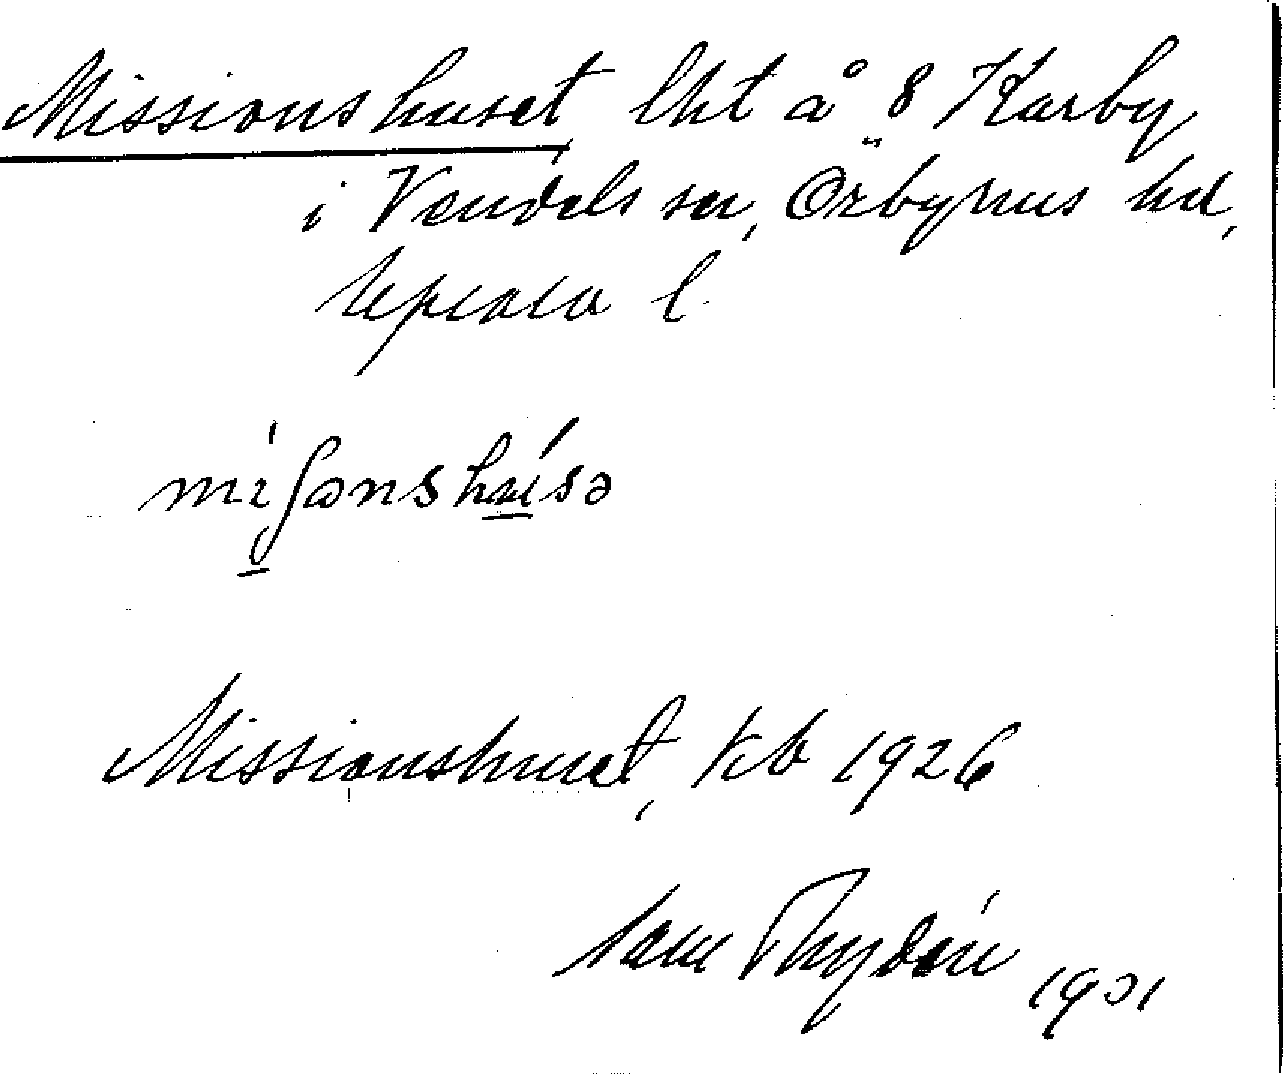 Missionshuset, lht å 8 Karby
i Vendels sn, Örbyhus hd,
Upsala l.
mìʃənshúsə
Missionshuset, kb 1926
Sam Rydén 1931